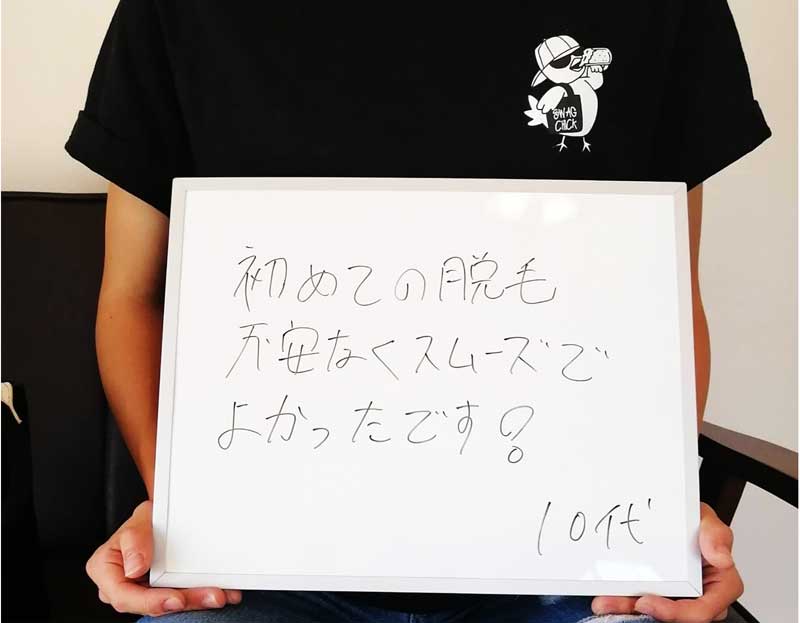 SWAG
CHICK
初めての脱毛
不安なくスムーズで
よかったです!
10代